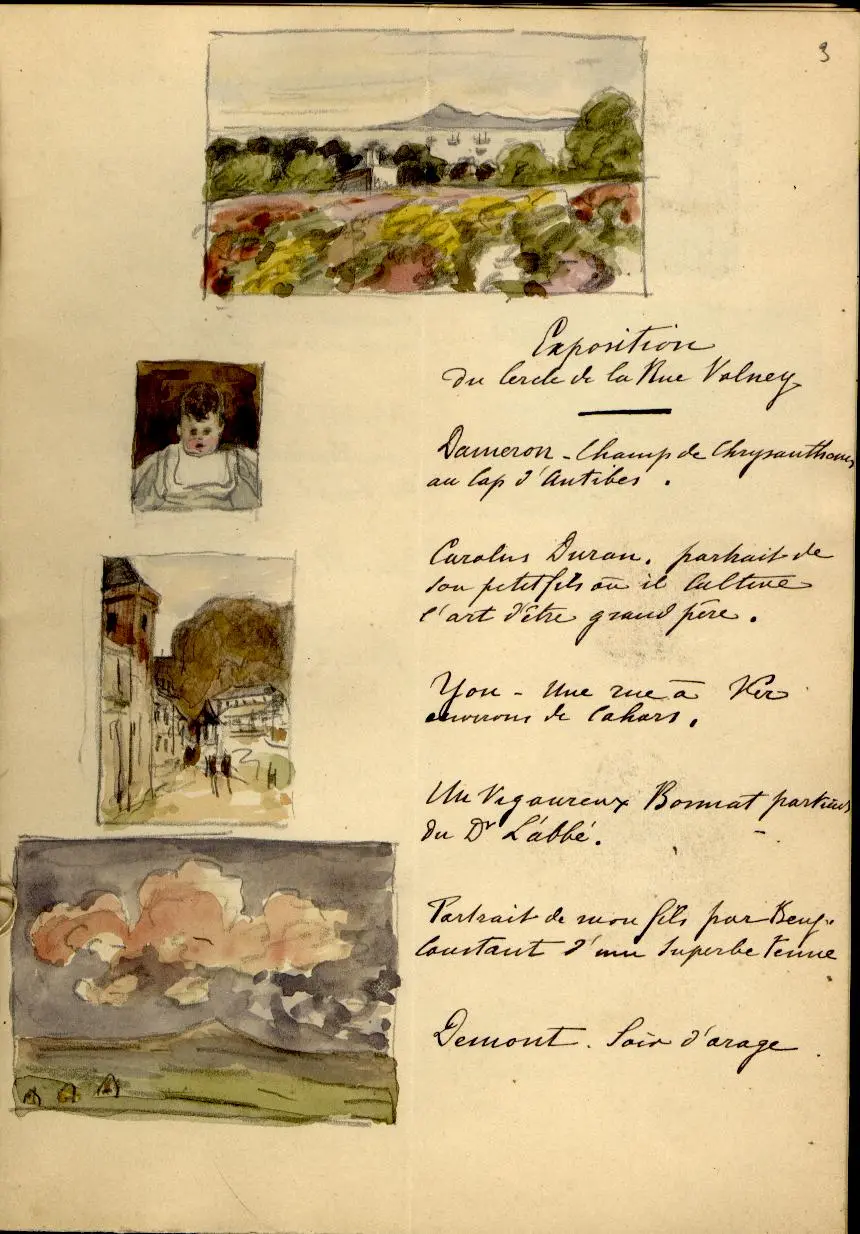 3
Exposition
du Cercle de la Rue Volney
Dameron - Champ de Chrysanthemes
au Cap d'Antibes.
Carolus Duran. portrait de
son petit fils où il cultive
l'art d'être grand père.
You - Une rue à
environs de Cahors.
Un Vigoureux Bonnat portrait
du Dr Labbé.
Portrait de mon fils par Benj.
Constant d'une superbe tenue
Demont. Soir d'orage